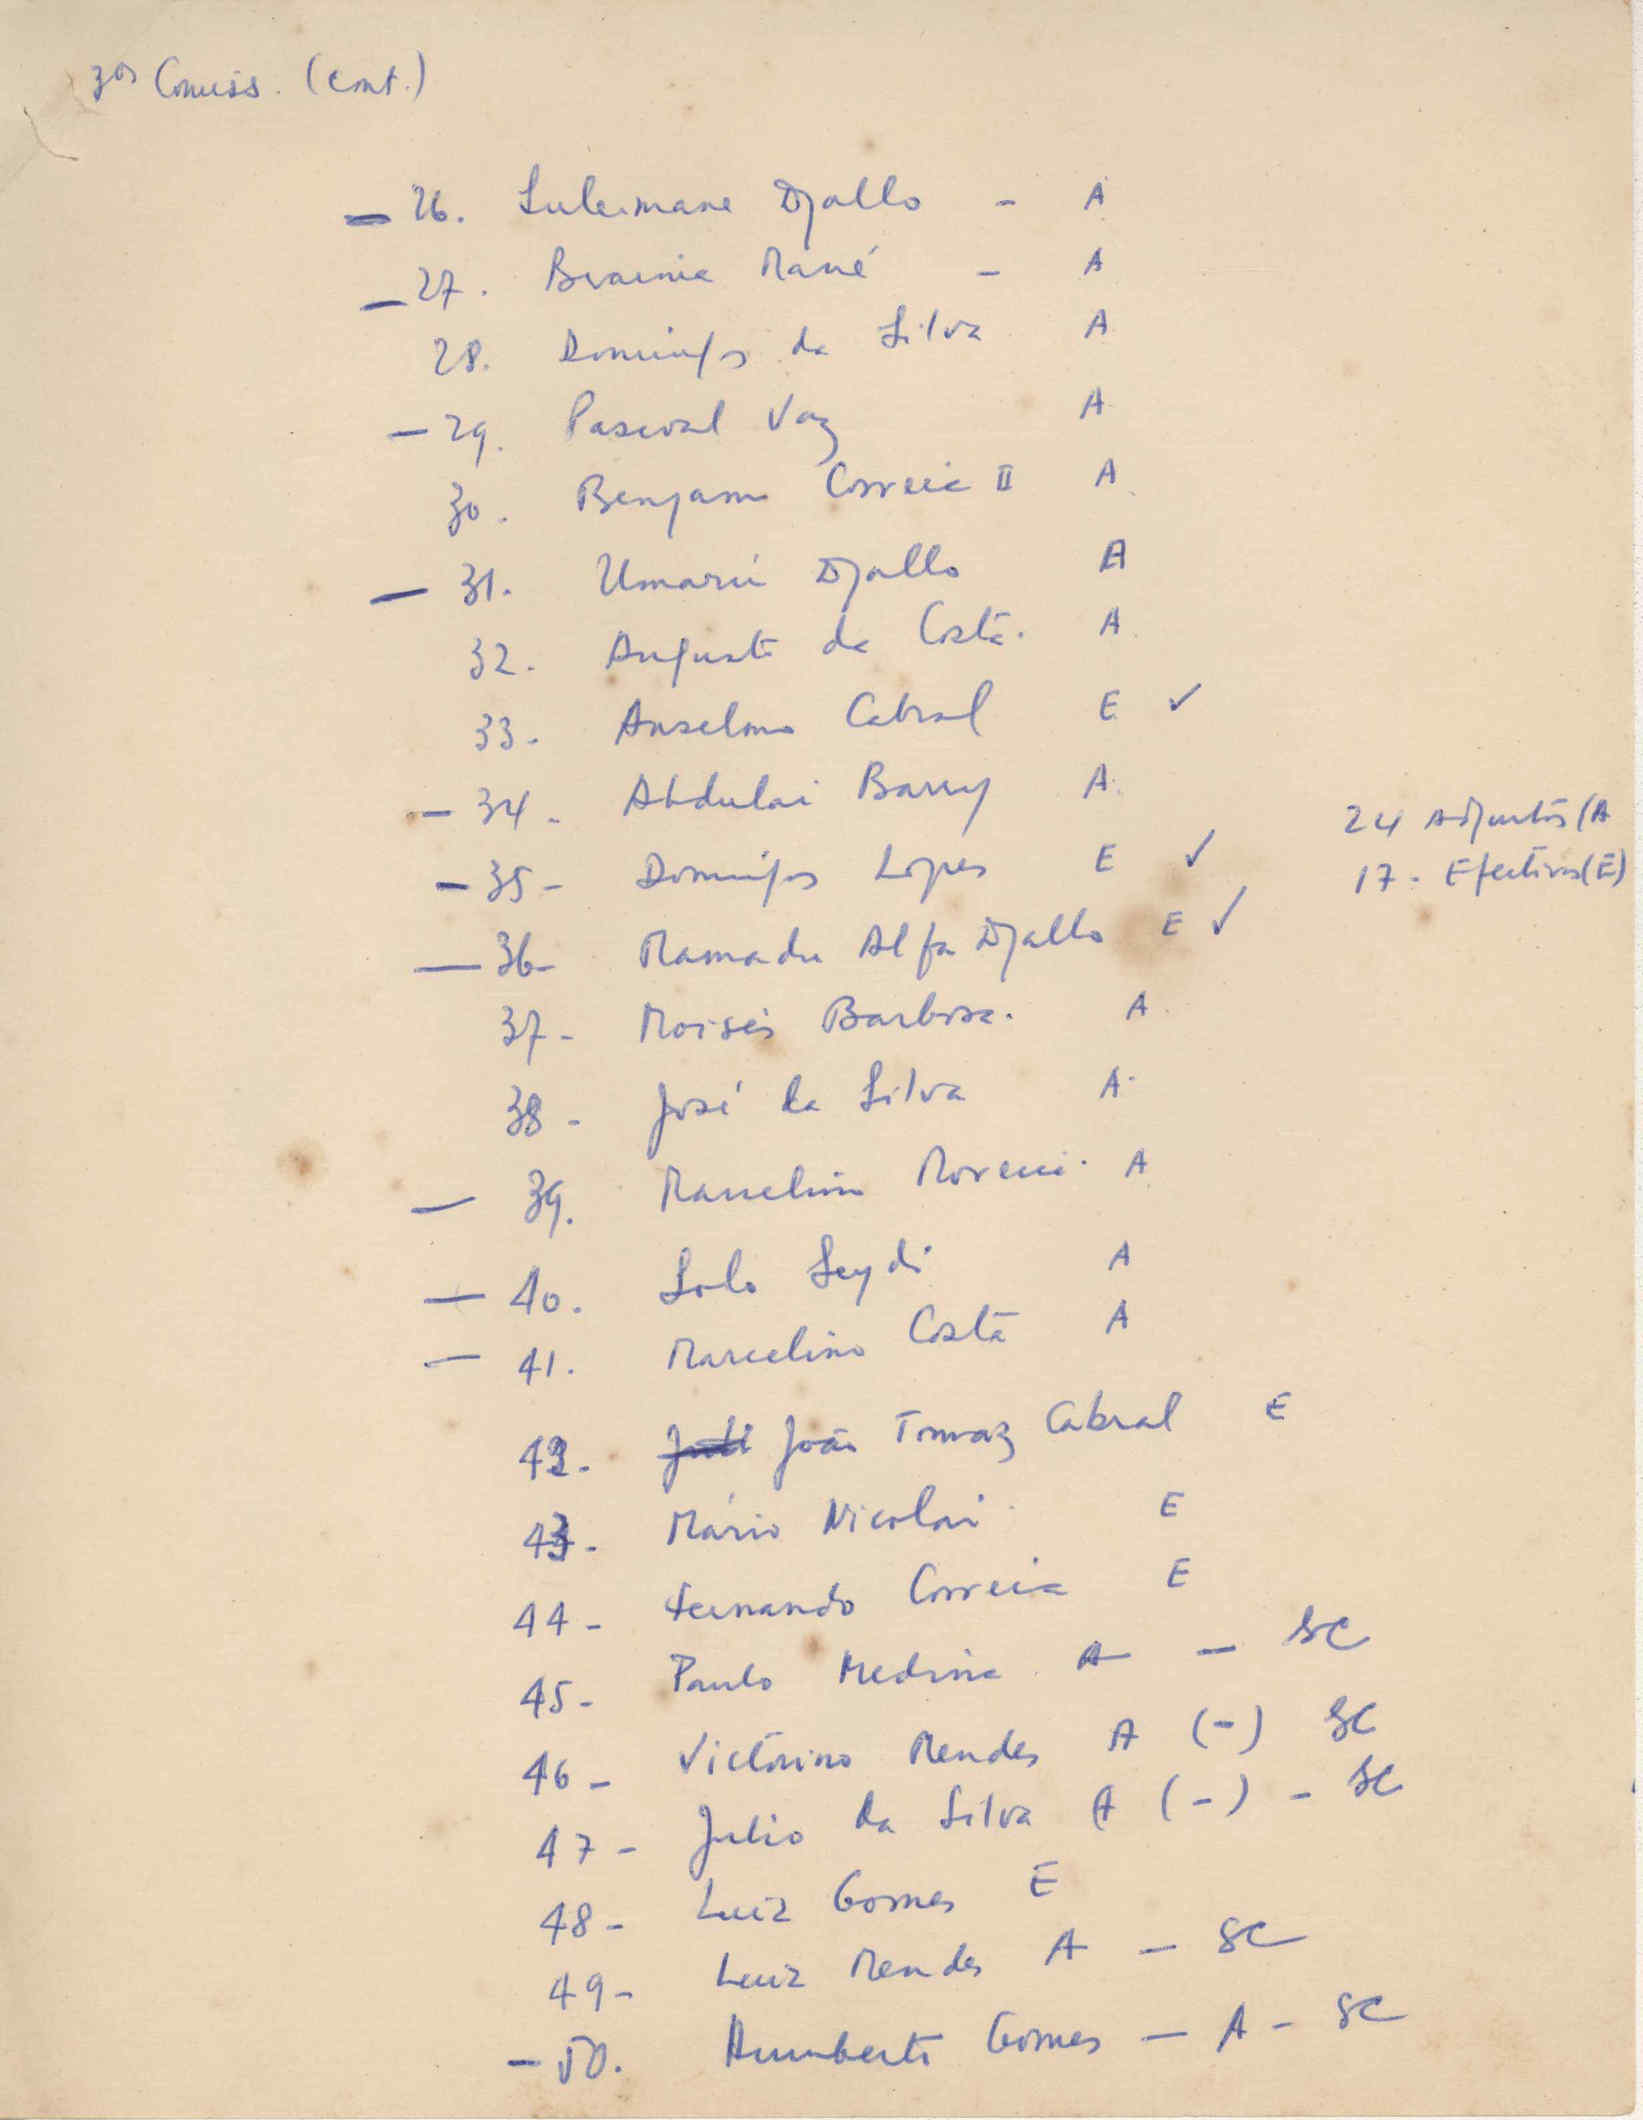 3os Comiss. (cont.)
— 26. Suleimane Djallo - A
— 27. Braima Mané - A
28. Domingos da Silva A
— 29. Pascoal Vaz A
30. Benjamo Correia II A
— 31. Umarú Djallo A
32. Augusto da Costa. A
33- Anselmo Cabral E ✓
— 34- Abdulai Barry A
— 35- Domingos Lopes E ✓
24 Adjuntos (A
17- Efectivos (E)
— 36- Mamadu Alfa Djallo E ✓
37- Moisés Barbosa. A
38- José da Silva A
— 39. Marcelino Moreira. A
— 40. Solo Seydi A
— 41. Marcelino Costa A
42. João Tomaz Cabral E
43- Mário Nicolai E
44- Fernando Correia E
45- Paulo Medina A — SC
46- Victorino Mendes A (-) SC
47- Julio da Silva A (-) - SC
48- Luiz Gomes E
49- Luiz Mendes A — SC
— 50. Humberto Gomes — A - SC